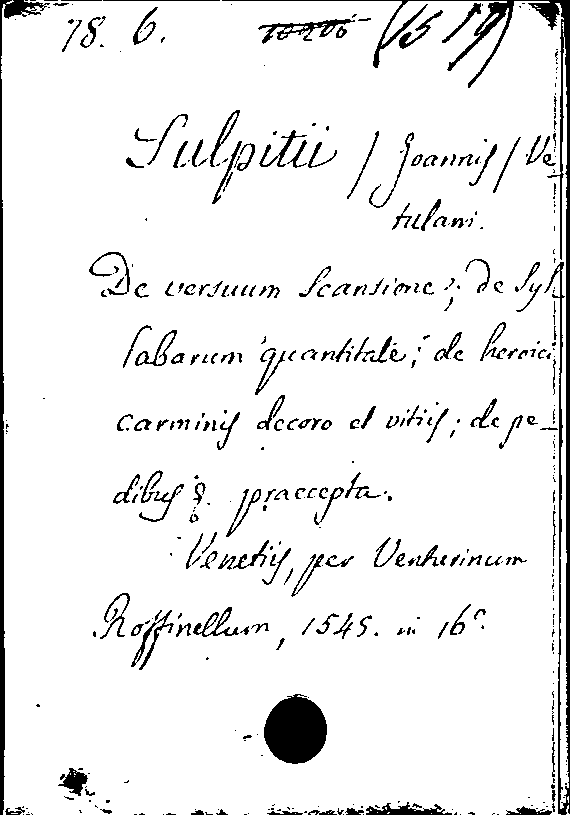 78. 6. (1519)
Sulpitii / Joannis / Ve-
tulani.
De versuum scansione; de syl-
labarum quantitate; de heroici
carminis decoro et vitiis; de pe-
dibus &. praecepta.
Venetiis, per Venturinum
Roffinellum, 1545. in 16°.